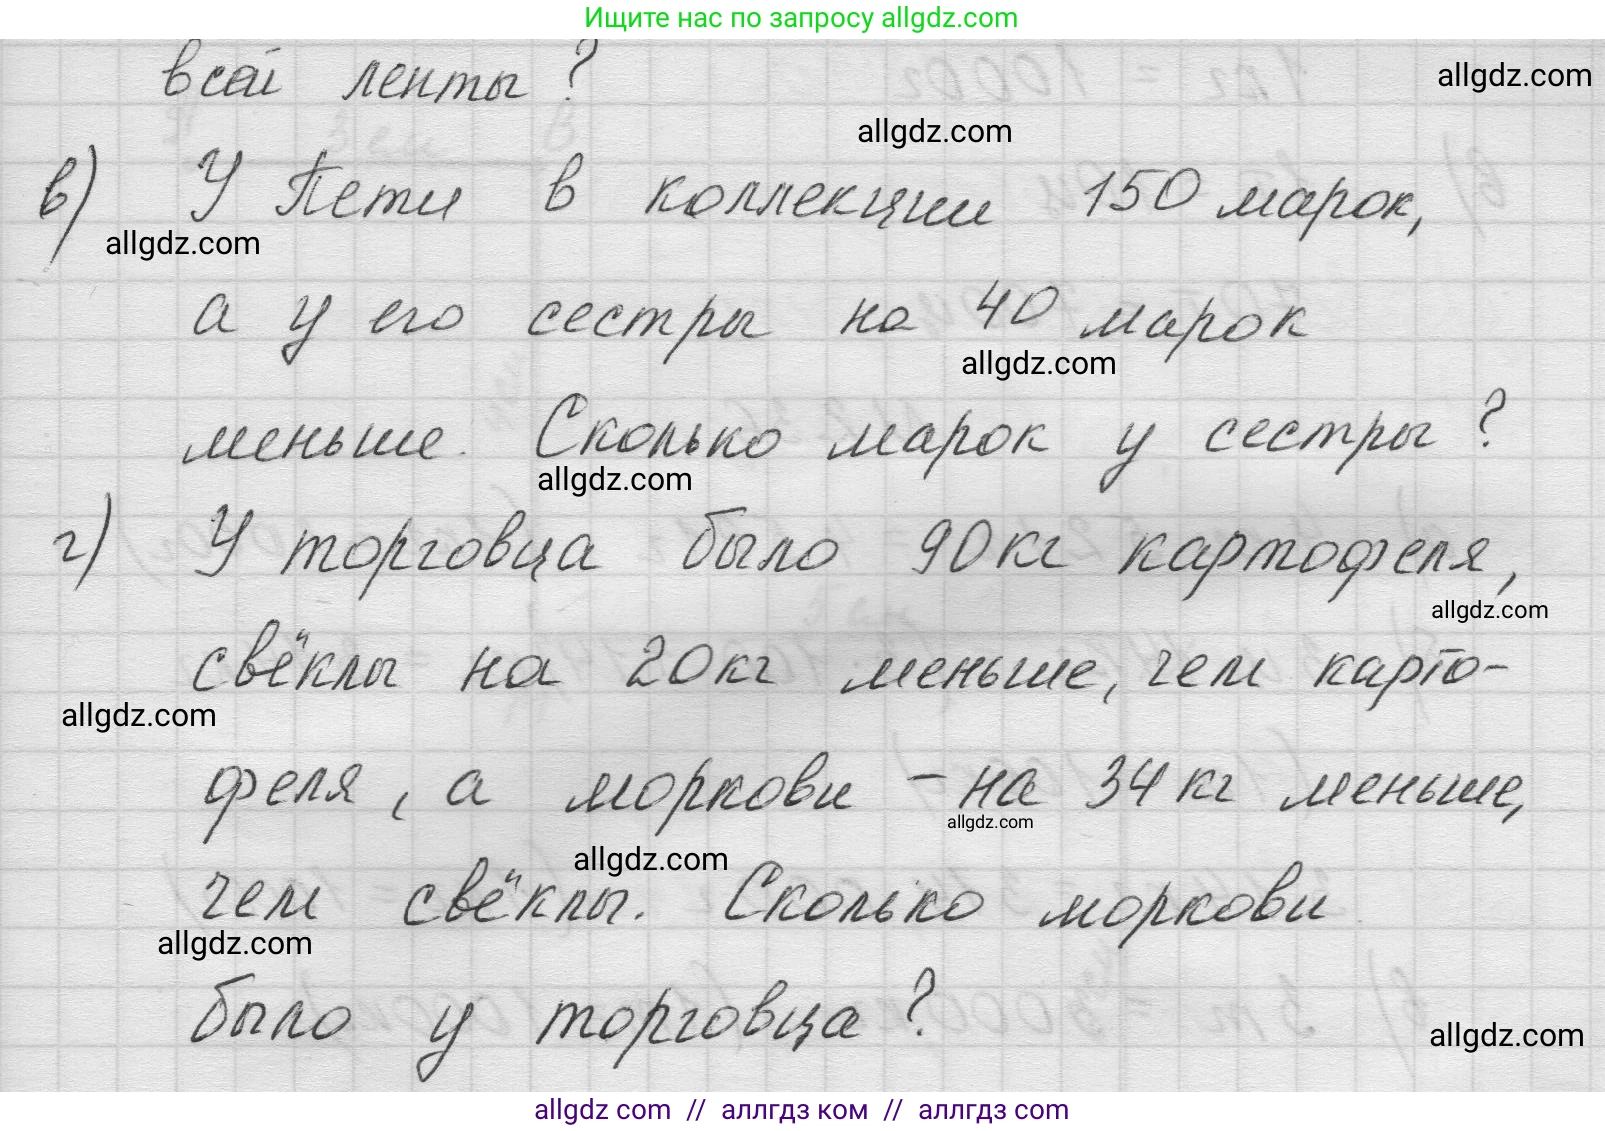 Ищите нас по запросу allgdz.com
всей ленты?
allgdz.com
allgdz.com
в) У Пети в коллекции 150 марок,
allgdz.com
а у его сестры на 40 марок
allgdz.com
меньше. Сколько марок у сестры?
allgdz.com
г) У торговца было 90 кг картофеля,
allgdz.com
свёклы на 20 кг меньше, чем карто-
allgdz.com
феля, а моркови - на 34 кг меньше,
allgdz.com
allgdz.com
чем свёклы. Сколько моркови
allgdz.com
было у торговца?
allgdz.com
allgdz com // аллгдз ком // аллгдз com